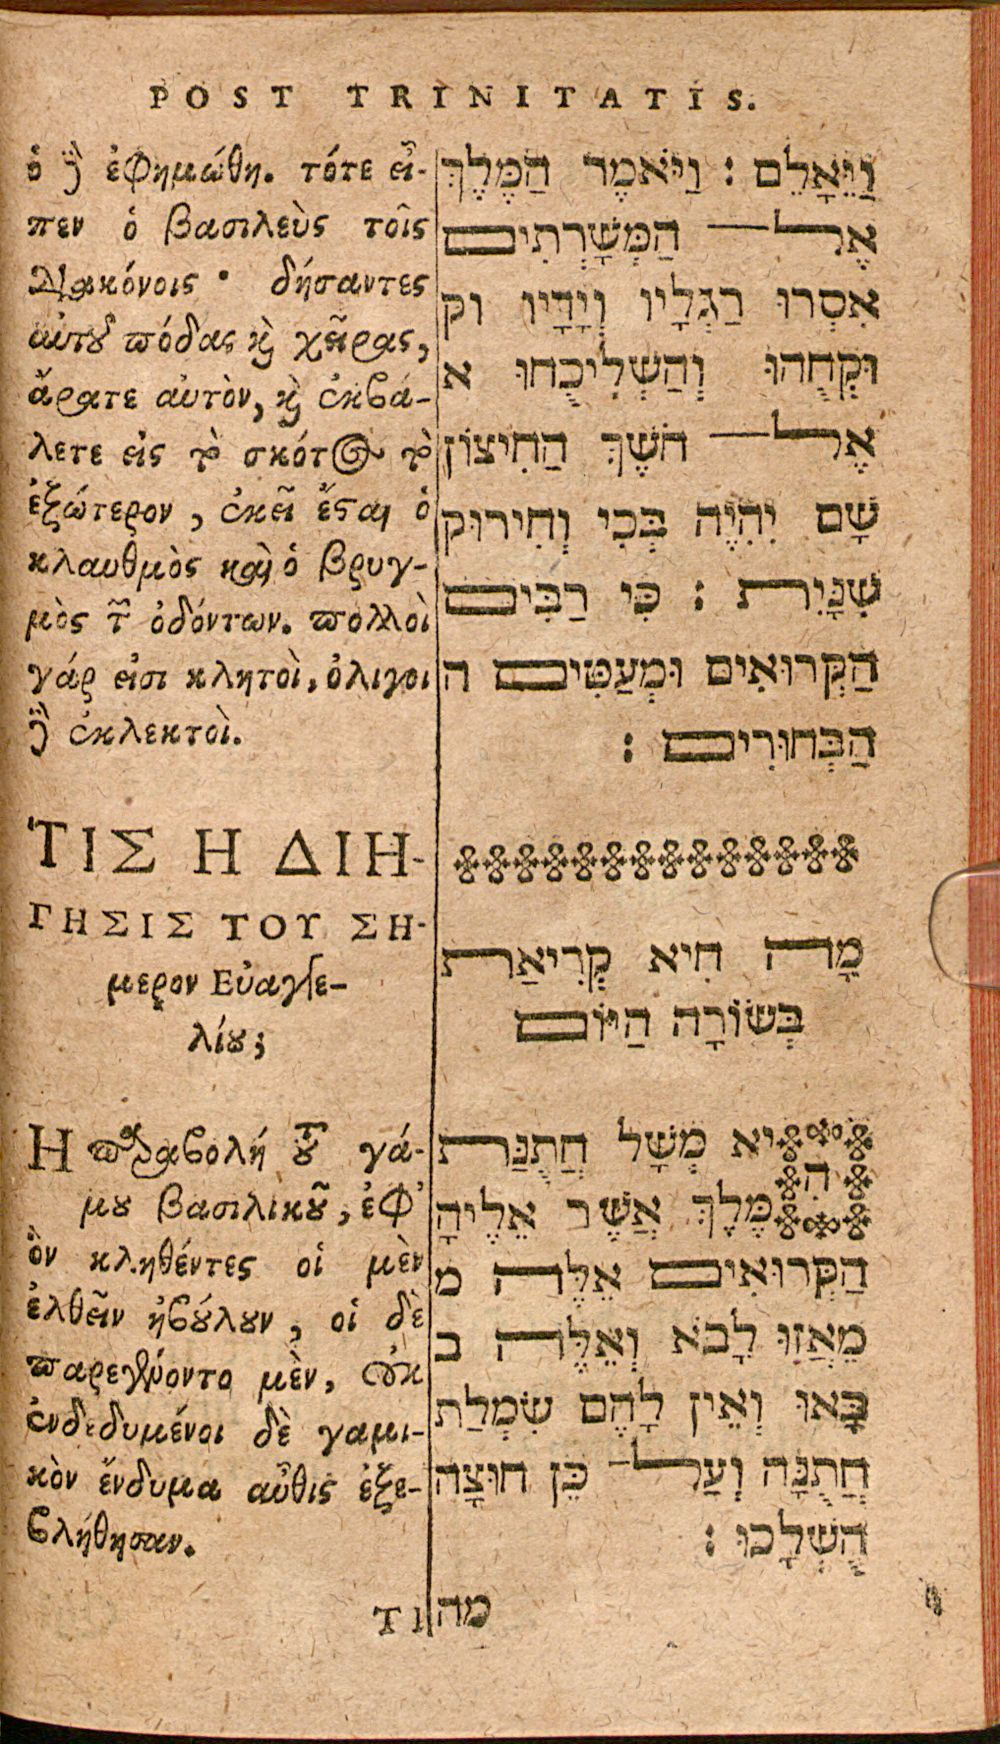 POST TRINITATIS.
ὁ δὲ ἐφημώθη. τότε εἶ-
πεν ὁ βασιλεὺς τοῖς
διακόνοις· δήσαντες
αὐτοῦ πόδας καὶ χεῖρας,
ἄρατε αὐτὸν, καὶ ἐκβά-
λετε εἰς τὸ σκότος τὸ
ἐξώτερον, ἐκεῖ ἔσται ὁ
κλαυθμὸς καὶ ὁ βρυγ-
μὸς τῶν ὀδόντων. πολλοὶ
γάρ εἰσι κλητοὶ, ὀλίγοι
δὲ ἐκλεκτοὶ.
ΤΙΣ Η ΔΙΗ-
ΓΗΣΙΣ ΤΟΥ ΣΗ-
μερον Εὐαγγε-
λίου;
Η παραβολή τοῦ γά-
μου βασιλικοῦ, ἐφ᾽
ὃν κληθέντες οἱ μὲν
ἐλθεῖν ἠβούλουν, οἱ δὲ
παρεγένοντο μὲν, οὐκ
ἐνδεδυμένοι δὲ γαμι-
κὸν ἔνδυμα αὖθις ἐξε-
βλήθησαν.
ΤΙ
וַיֵּאָלֵם : וַיֹּאמֶר הַמֶּלֶךְ
אֶל הַמְּשָׁרְתִים
אִסְרוּ רַגְלָיו וְיָדָיו וק
וּקְחֻהוּ וְהַשְׁלִיכֻהוּ א
אֶל חֹשֶׁךְ הַחִיצוֹן
שָׁם יִהְיֶה בְּכִי וְחִירוּק
שִׁנָּיִת : כִּי רַבִּים
הַקְּרוּאִים וּמְעַטִּים ה
הַבְּחוּרִים :
מָה הִיא קְרִיאַת
בְּשׂוֹרָה הַיּוֹם
הִיא מְשָׁל חֲתֻנַּת
מֶלֶךְ אֲשֶׁר אֵלֶיהָ
הַקְּרוּאִים אֵלֶּה מ
מֵאֲנוּ לָבֹא וְאֵלֶּה ב
בָּאוּ וְאֵין לָהֶם שִׂמְלַת
חֲתֻנָּה וְעַל כֵּן חוּצָה
הָשְׁלָכוּ :
מה